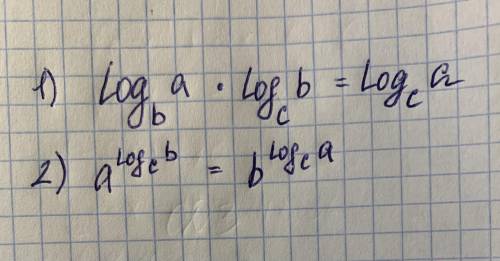 1) log_b a · log_c b = log_c a
2) a^{log_c b} = b^{log_c a}